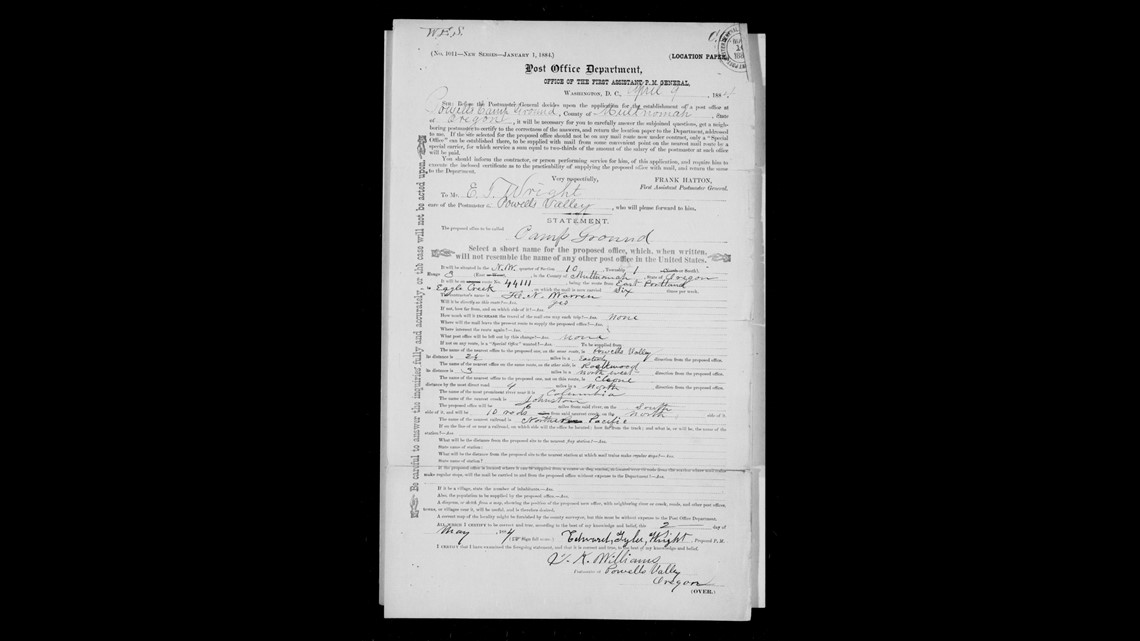 W.E.S.
(No. 1011—New Series—January 1, 1884.)
(LOCATION PAPER.)
Post Office Department,
OFFICE OF THE FIRST ASSISTANT P. M. GENERAL,
Washington, D. C., April 9, 1884
Sir: Before the Postmaster General decides upon the application for the establishment of a post office at
Powells Camp Ground, County of Multnomah, State
of Oregon, it will be necessary for you to carefully answer the subjoined questions, get a neigh-
boring postmaster to certify to the correctness of the answers, and return the location paper to the Department, addressed
to me. If the site selected for the proposed office should not be on any mail route now under contract, only a "Special
Office" can be established there, to be supplied with mail from some convenient point on the nearest mail route by a
special carrier, for which service a sum equal to two-thirds of the amount of the salary of the postmaster at such office
will be paid.
You should inform the contractor, or person performing service for him, of this application, and require him to
execute the inclosed certificate as to the practicability of supplying the proposed office with mail, and return the same
to the Department.
Very respectfully,
FRANK HATTON,
First Assistant Postmaster General.
To Mr. E. T. Wright
care of the Postmaster at Powells Valley, who will please forward to him.
STATEMENT.
The proposed office to be called Camp Ground
Select a short name for the proposed office, which, when written,
will not resemble the name of any other post office in the United States.
It will be situated in the N.W. quarter of Section 10, Township 1 South),
Range 3 (East), in the County of Multnomah, State of Oregon
It will be on route No. 44111, being the route from East Portland
to Eagle Creek, on which the mail is now carried Six times per week.
The contractor's name is H. N. Warren
Will it be directly on this route?—Ans. yes
If not, how far from, and on which side of it?—Ans.
How much will it increase the travel of the mail one way each trip?—Ans. None
Where will the mail leave the present route to supply the proposed office?—Ans.
Where intersect the route again?—Ans.
What post office will be left out by this change?—Ans. None
If not on any route, is a "Special Office" wanted?—Ans. To be supplied from
The name of the nearest office to the proposed one, on the same route, is Powells Valley
its distance is miles in a Easterly direction from the proposed office.
The name of the nearest office on the same route, on the other side, is
its distance is 3 miles in a North West direction from the proposed office.
The name of the nearest office to the proposed one, not on this route, is Cleone
distance by the most direct road 4 miles in a North direction from the proposed office.
The name of the most prominent river near it is Columbia
The name of the nearest creek is Johnston
The proposed office will be 6 miles from said river, on the South
side of it, and will be 10 rods from said nearest creek, on the North side of it.
The name of the nearest railroad is Northern Pacific
If on the line of or near a railroad, on which side will the office be located; how far from the track; and what is, or will be, the name of the
station?—Ans.
What will be the distance from the proposed site to the nearest flag station?—Ans.
State name of station:
What will be the distance from the proposed site to the nearest station at which mail trains make regular stops?—Ans.
State name of station?
make regular stops, will the mail be carried to and from the proposed office without expense to the Department?—Ans.
If it be a village, state the number of inhabitants:—Ans.
Also, the population to be supplied by the proposed office.—Ans.
A diagram, or sketch from a map, showing the position of the proposed new office, with neighboring river or creek, roads, and other post offices,
towns, or villages near it, will be useful, and is therefore desired.
A correct map of the locality might be furnished by the county surveyor, but this must be without expense to the Post Office Department.
All which I certify to be correct and true, according to the best of my knowledge and belief, this 2 day of
May, 1884
(Sign full name.) Edward, Tyler, Wright, Proposed P. M.
I certify that I have examined the foregoing statement, and that it is correct and true, to the best of my knowledge and belief.
K. Williams
Postmaster at Powells Valley
Oregon
(OVER.)
Be careful to answer the inquiries fully and accurately, or the case will not be acted upon.